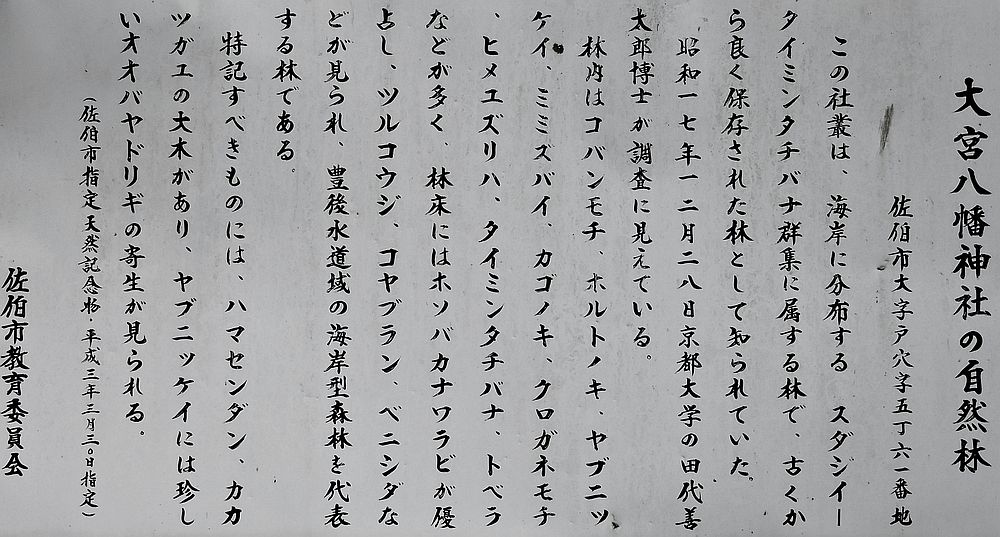 大宮八幡神社の自然林
佐伯市大字戸穴字五丁六一番地
この社叢は、海岸に分布する スダジイー
タイミンタチバナ群集に属する林で、古くか
ら良く保存された林として知られていた。
昭和一七年一二月二八日京都大学の田代善
太郎博士が調査に見えている。
林内はコバンモチ、ホルトノキ、ヤブニッ
ケイ、ミミズバイ、カゴノキ、クロガネモチ
、ヒメユズリハ、タイミンタチバナ、トベラ
などが多く、林床にはホソバカナワラビが優
占し、ツルコウジ、コヤブラン、ベニシダな
どが見られ、豊後水道域の海岸型森林を代表
する林である。
特記すべきものには、ハマセンダン、カカ
ツガユの大木があり、ヤブニッケイには珍し
いオオバヤドリギの寄生が見られる。
(佐伯市指定天然記念物・平成三年三月三〇日指定)
佐伯市教育委員会